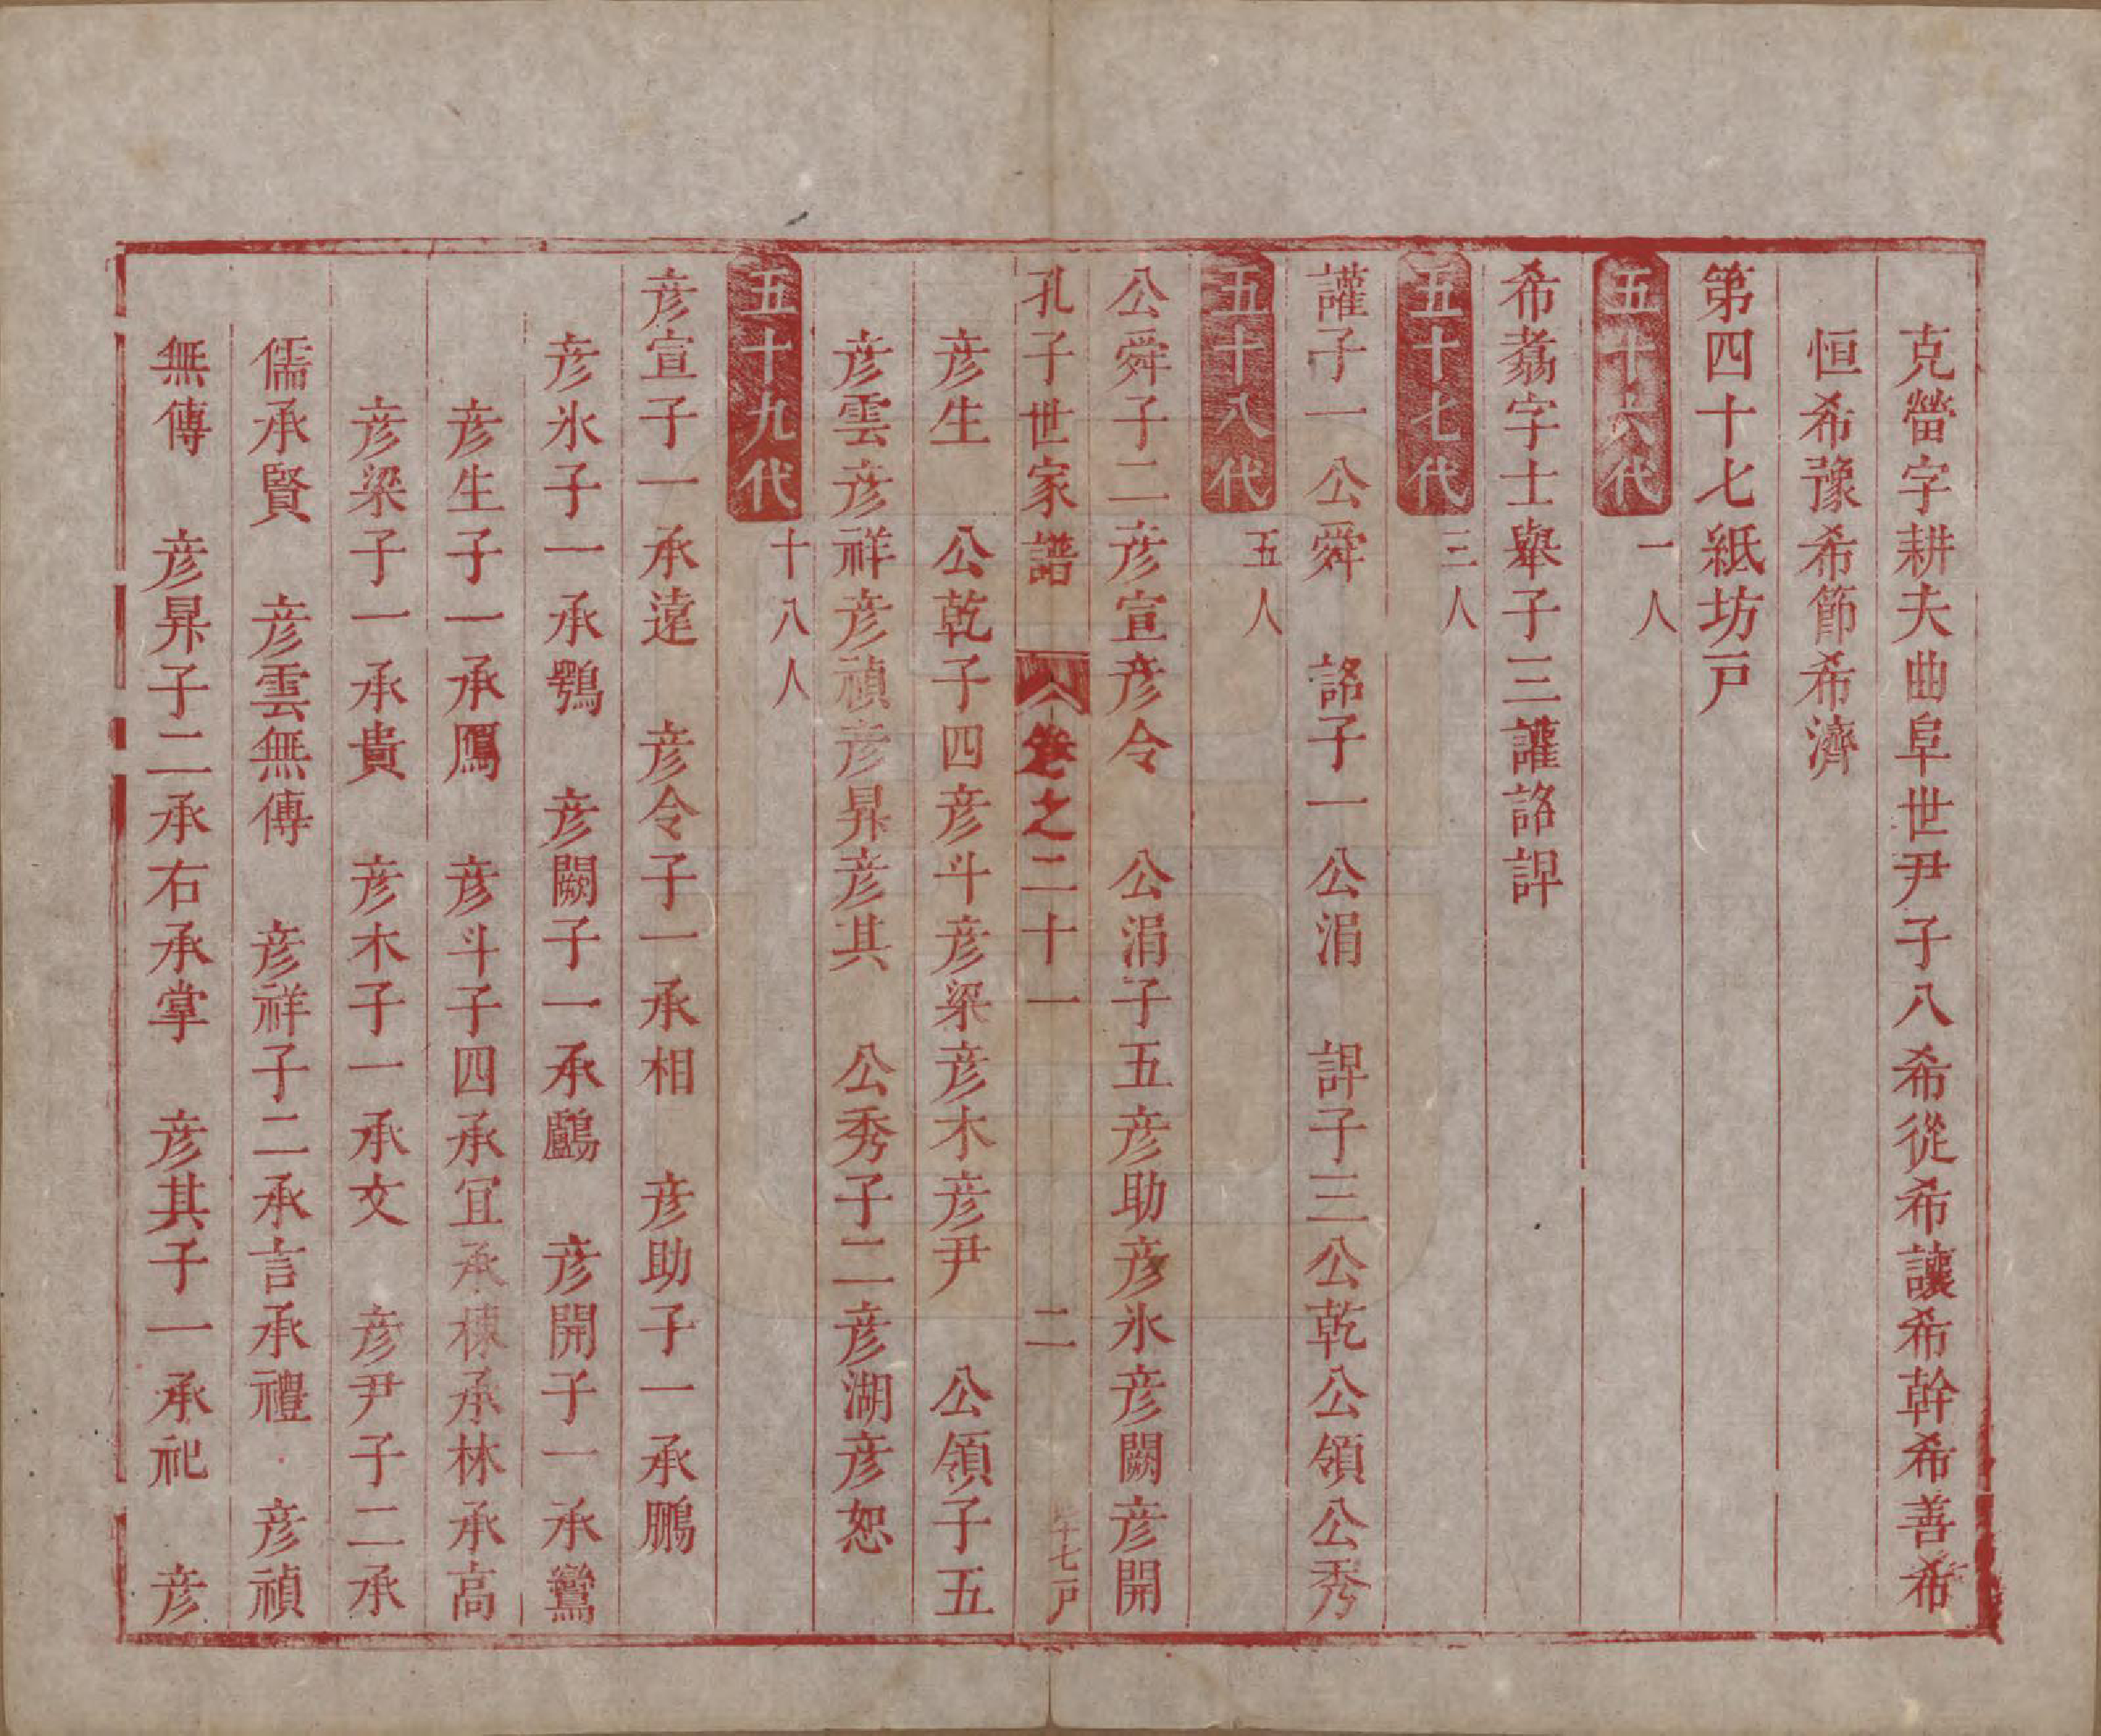 克營字耕夫曲阜世尹子八希從希讓希幹希善希
恒希豫希節希濟
第四十七紙坊戸
五十六代 一人
希㬎字士舉子三讙詻諀
五十七代 三人
讙子一公舜 詻子一公涓 諀子三公乾公領公秀
五十八代 五人
公舜子二彦宣彦令 公涓子五彦助彦氷彦闕彦開
孔子世家譜 卷之二十一 二 七戸
彦生 公乾子四彦斗彦梁彦木彦尹 公領子五
彦雲彦祥彦禎彦昇彦其 公秀子二彦湖彦恕
五十九代 十八人
彦宣子一承遠 彦令子一承相 彦助子一承鵬
彦氷子一承鶚 彦闕子一承鸕 彦開子一承鸞
彦生子一承鳫 彦斗子四承宜承棟承林承高
彦梁子一承貴 彦木子一承文 彦尹子二承
儒承賢 彦雲無傳 彦祥子二承言承禮 彦禎
無傳 彦昇子二承右承掌 彦其子一承祀 彦